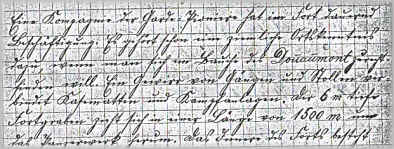 Eine Kompagnie der Garde-Pioniere hat im Fort dauernd
Beschäftigung. Es gehört schon eine ziemliche Ortskenntnis
dazu, wenn man sich im Bauche des Douaumont zurecht-
finden will. Ein Gewirr von Gängen und Stollen ver-
bindet Kasematten und Kampfanlagen. Der 6 m tiefe
Fortgraben zieht sich in einer Länge von 1500 m um
das Panzerwerk herum. Das Innere des Forts besteht